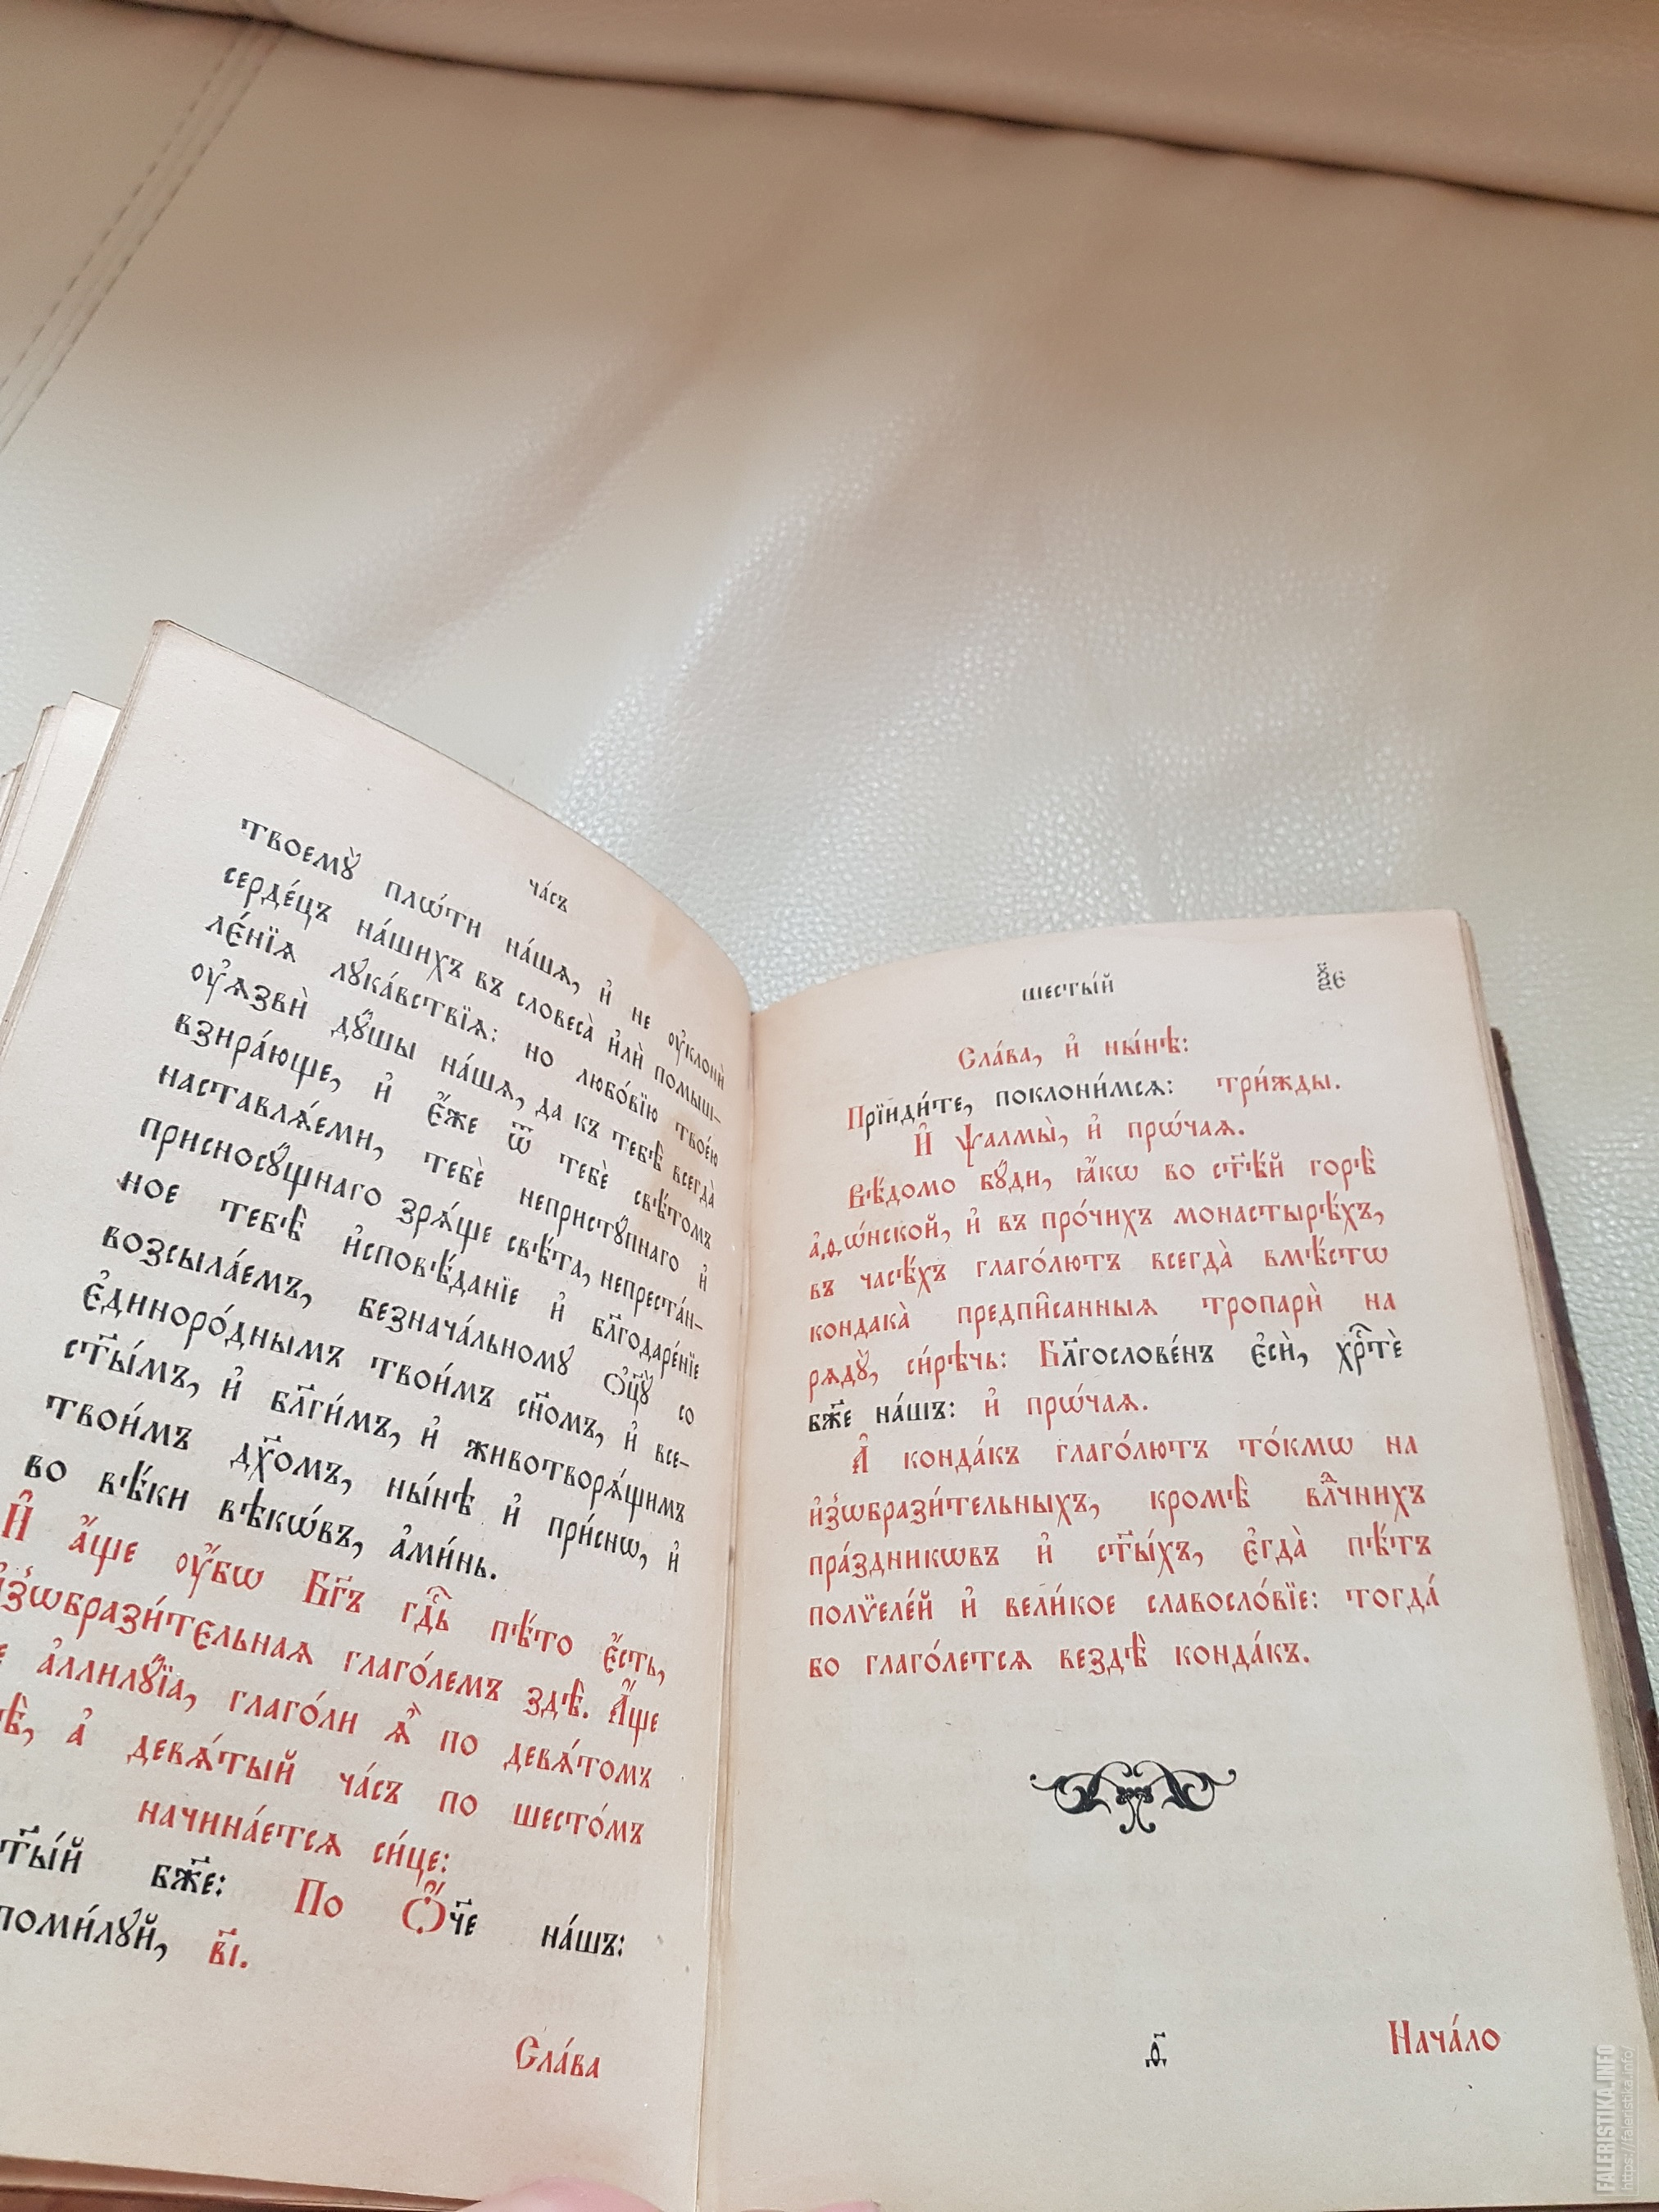 ча́съ
твоемꙋ̀ плѡ́ти на́шѧ, и҆ не ᲂу҆клонѝ
серде́цъ на́шихъ въ словеса̀ и҆лѝ помыш-
ле́нїѧ лꙋка́вствїѧ: но любо́вїю твое́ю
ᲂу҆ѧзвѝ дꙋ́шы на́шѧ, да къ тебѣ̀ всегда̀
взира́юще, и҆ є҆́же ѿ тебє̀ свѣ́томъ
наставлѧ́еми, тебѐ непристꙋ́пнаго и҆
присносꙋ́щнаго зрѧ́ще свѣ́та, непреста́н-
ное тебѣ̀ и҆сповѣ́данїе и҆ бл҃годаре́нїе
возсыла́емъ, безнача́льномꙋ ѻ҆ц҃ꙋ̀ со
є҆диноро́днымъ твои́мъ сн҃омъ, и҆ все-
ст҃ы́мъ, и҆ бл҃ги́мъ, и҆ животворѧ́щимъ
твои́мъ дх҃омъ, ны́нѣ и҆ при́снѡ, и҆
во вѣ́ки вѣкѡ́въ, а҆ми́нь.
И҆ а҆́ще ᲂу҆́бѡ Бг҃ъ гдⷭ҇ь пѣ́то є҆́сть,
и҆зѡбрази́тєльнаѧ глаго́лемъ здѣ̀. А҆́ще
а҆ллилꙋ́їа, глаго́ли ѧ҆̀ по девѧ́томъ
а҆ девѧ́тый ча́съ по шесто́мъ
начина́етсѧ си́це:
бж҃е: По Ѻ҆́ч҃е на́шъ:
поми́лꙋй, в҃і.
Сла́ва
шесты́й
Сла́ва, и҆ ны́нѣ:
Прїиди́те, поклони́мсѧ: три́жды.
И҆ ѱалмы̀, и҆ прѡ́чаѧ.
Вѣ́домо бꙋ́ди, ꙗ҆́кѡ во ст҃ѣ́й горѣ̀
а҆ѳѡ́нской, и҆ въ про́чихъ монастырѣ́хъ,
въ часѣ́хъ глаго́лютъ всегда̀ вмѣ́стѡ
кондака̀ предпи̑санныѧ тропарѝ на
рѧдꙋ̀, си́рѣчь: Бл҃гослове́нъ є҆сѝ, хрⷭ҇тѐ
бж҃е на́шъ: и҆ прѡ́чаѧ.
А҆ конда́къ глаго́лютъ то́кмѡ на
и҆зѡбрази́тельныхъ, кромѣ̀ влⷣчнихъ
пра́здникѡвъ и҆ ст҃ы́хъ, є҆гда̀ пѣ́тъ
полѷеле́й и҆ вели́кое славосло́вїе: тогда́
бо глаго́летсѧ вездѣ̀ конда́къ.
д҃
Нача́ло
FALERISTIKA.INFO
https://faleristika.info/